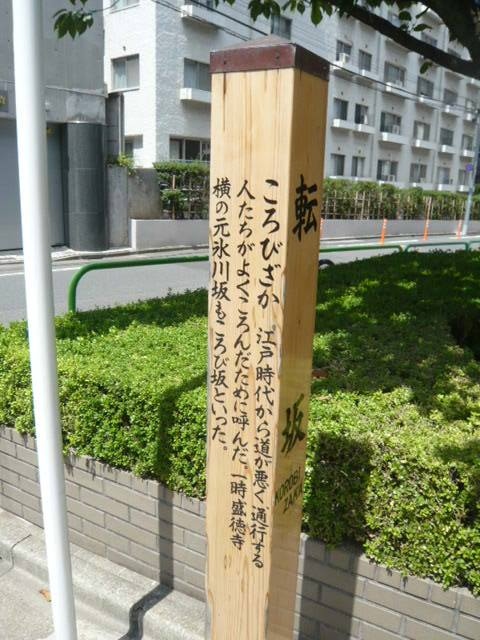 ころびざか　江戸時代から道が悪く、通行する
人たちがよくころんだために呼んだ。一時盛徳寺
横の元氷川坂もころび坂といった。
転坂
KOROBI
ZAKA